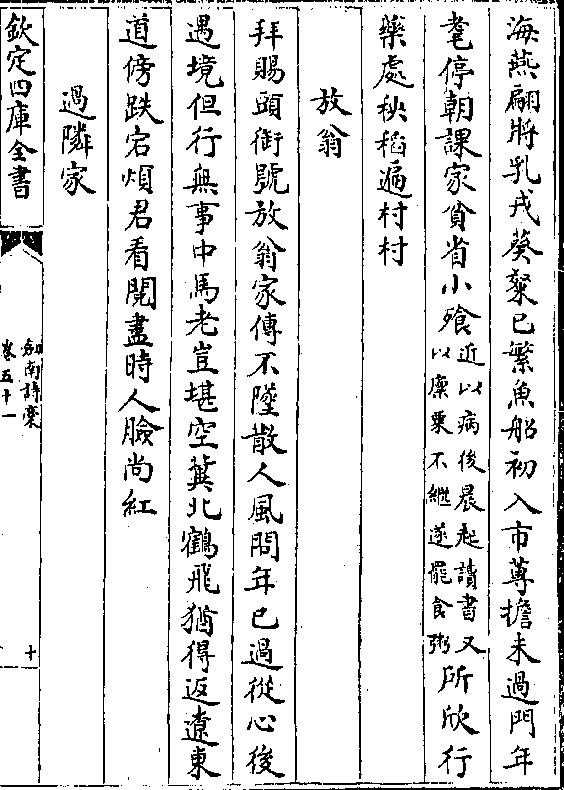 海燕翩將乳戎葵粲已繁魚船初入市蓴擔未過門年
耄停朝課家貧省小飱近以病後晨起讀書又
以廩粟不繼遂罷食粥所欣行
藥處秧稻遍村村
放翁
拜賜頭銜號放翁家傳不墜散人風問年已過從心後
遇境但行無事中馬老豈堪空冀北鶴飛猶得返遼東
道傍跌宕煩君看閱盡時人臉尚紅
過隣家
欽定四庫全書
劍南詩稾
卷五十一
十